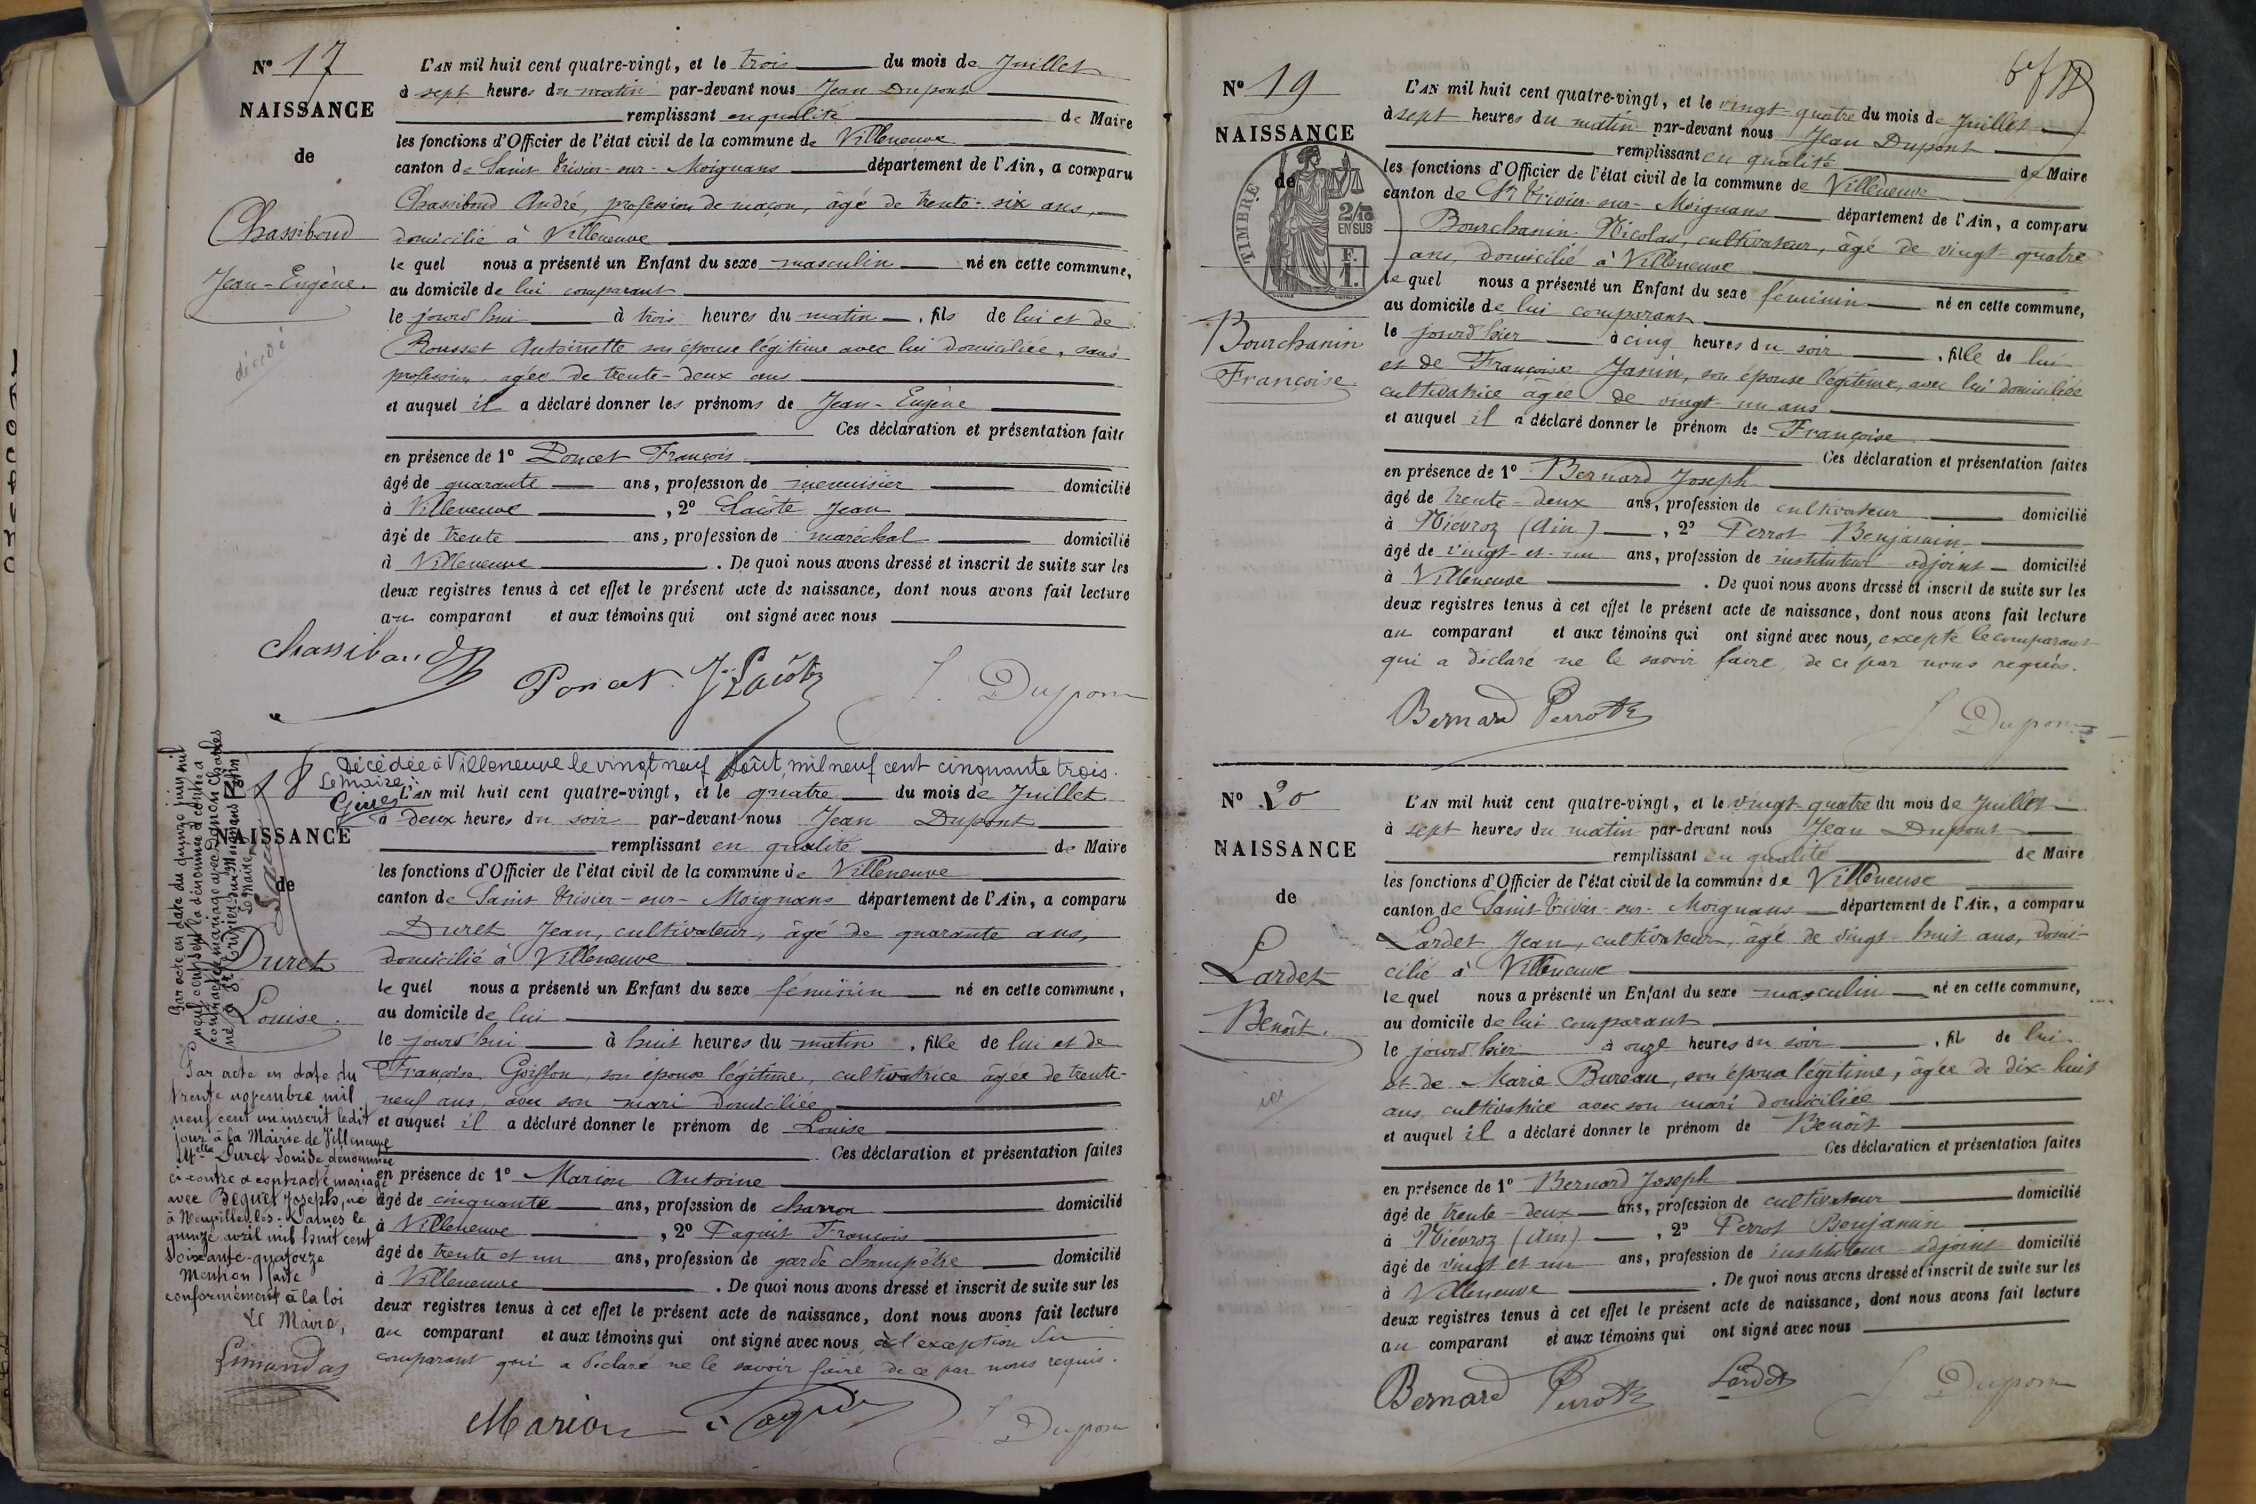 N° 17
NAISSANCE
de
Chassiboud
Jean-Eugène.
décédé
L'AN mil huit cent quatre-vingt, et le trois du mois de Juillet
à sept heures du matin par-devant nous Jean Dupont
remplissant en qualité de Maire
les fonctions d'Officier de l'état civil de la commune de Villeneuve
canton de Saint Trivier-sur-Moignans département de l'Ain, a comparu
Chassiboud André, profession de maçon, âgé de trente-six ans,
domicilié à Villeneuve
le quel nous a présenté un Enfant du sexe masculin né en cette commune,
au domicile de lui comparant
le jourd'hui à trois heures du matin, fils de lui et de
Rousset Antoinette son épouse légitime avec lui domiciliée, sans
profession, agée de trente-deux ans
et auquel il a déclaré donner les prénoms de Jean-Eugène
Ces déclaration et présentation faites
en présence de 1° Poncet François
âgé de quarante ans, profession de menuisier domicilié
à Villeneuve, 2° Lacôte Jean
âgé de trente ans, profession de maréchal domicilié
à Villeneuve. De quoi nous avons dressé et inscrit de suite sur les
deux registres tenus à cet effet le présent acte de naissance, dont nous avons fait lecture
au comparant et aux témoins qui ont signé avec nous
Chassiboud Poncet J. Lacôte J. Dupont
Décédée à Villeneuve le vingt neuf Août, mil neuf cent cinquante trois.
Le Maire:
N° 18
NAISSANCE
de
Duret
Louise.
Par acte en date du quinze juin mil
neuf cent sept la dénommée ci contre a
contracté mariage avec Charles
né à St Trivier-sur-Moignans
Le Maire
Par acte en date du
trente novembre mil
neuf cent un inscrit ledit
jour à la Mairie de Villeneuve
Melle Duret Louise dénommée
ci-contre a contracté mariage
avec Beguet Joseph, né
à Neuville-les-Dames le
quinze avril mil huit cent
soixante-quatorze
Mention faite
conformément à la loi
Le Maire,
Limandas
L'AN mil huit cent quatre-vingt, et le quatre du mois de Juillet
à deux heures du soir par-devant nous Jean Dupont
remplissant en qualité de Maire
les fonctions d'Officier de l'état civil de la commune de Villeneuve
canton de Saint Trivier-sur-Moignans département de l'Ain, a comparu
Duret Jean, cultivateur, âgé de quarante ans,
domicilié à Villeneuve
le quel nous a présenté un Enfant du sexe féminin né en cette commune,
au domicile de lui
le jourd'hui à huit heures du matin, fille de lui et de
Françoise Goiffon, son épouse légitime, cultivatrice âgée de trente-
neuf ans, avec son mari domiciliée
et auquel il a déclaré donner le prénom de Louise
Ces déclaration et présentation faites
en présence de 1° Marion Antoine
âgé de cinquante ans, profession de charron domicilié
à Villeneuve, 2° Paquit François
âgé de trente et un ans, profession de garde champêtre domicilié
à Villeneuve. De quoi nous avons dressé et inscrit de suite sur les
deux registres tenus à cet effet le présent acte de naissance, dont nous avons fait lecture
au comparant et aux témoins qui ont signé avec nous, à l'exception du
comparant qui a déclaré ne le savoir faire de ce par nous requis.
Marion J. Dupont
N° 19
NAISSANCE
de
TIMBRE
2/10
EN SUS
F.
1.
Bourchanin
Françoise
L'AN mil huit cent quatre-vingt, et le vingt-quatre du mois de Juillet
à sept heures du matin par-devant nous Jean Dupont
remplissant en qualité de Maire
les fonctions d'Officier de l'état civil de la commune de Villeneuve
canton de St Trivier-sur-Moignans département de l'Ain, a comparu
Bourchanin Nicolas, cultivateur, âgé de vingt-quatre
ans, domicilié à Villeneuve
le quel nous a présenté un Enfant du sexe féminin né en cette commune,
au domicile de lui comparant
le jourd'hier à cinq heures du soir, fille de lui
et de Françoise Janin, son épouse légitime, avec lui domiciliée
cultivatrice âgée de vingt-un ans
et auquel il a déclaré donner le prénom de Françoise
Ces déclaration et présentation faites
en présence de 1° Bernard Joseph
âgé de trente-deux ans, profession de cultivateur domicilié
à Niévroz (Ain), 2° Perrot Benjamin
âgé de vingt-et-un ans, profession de instituteur adjoint domicilié
à Villeneuve. De quoi nous avons dressé et inscrit de suite sur les
deux registres tenus à cet effet le présent acte de naissance, dont nous avons fait lecture
au comparant et aux témoins qui ont signé avec nous, excepté le comparant
qui a déclaré ne le savoir faire, de ce par nous requis.
Bernard Perrot J. Dupont
N° 20
NAISSANCE
de
Lardet
Benoît.
L'AN mil huit cent quatre-vingt, et le vingt-quatre du mois de Juillet
à sept heures du matin par-devant nous Jean Dupont
remplissant en qualité de Maire
les fonctions d'Officier de l'état civil de la commune de Villeneuve
canton de Saint-Trivier-sur-Moignans département de l'Ain, a comparu
Lardet Jean, cultivateur, âgé de vingt-huit ans, domi-
cilié à Villeneuve
le quel nous a présenté un Enfant du sexe masculin né en cette commune,
au domicile de lui comparant
le jourd'hier à onze heures du soir, fils de lui
et de Marie Bureau, son épouse légitime, âgée de dix-huit
ans, cultivatrice avec son mari domiciliée
et auquel il a déclaré donner le prénom de Benoît
Ces déclaration et présentation faites
en présence de 1° Bernard Joseph
âgé de trente-deux ans, profession de cultivateur domicilié
à Niévroz (Ain), 2° Perrot Benjamin
âgé de vingt et un ans, profession de instituteur-adjoint domicilié
à Villeneuve. De quoi nous avons dressé et inscrit de suite sur les
deux registres tenus à cet effet le présent acte de naissance, dont nous avons fait lecture
au comparant et aux témoins qui ont signé avec nous
Bernard Perrot Lardet J. Dupont